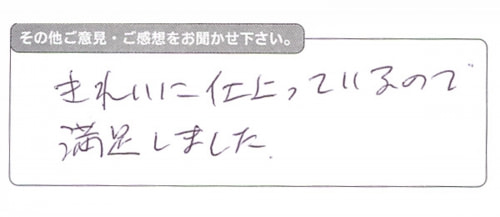 その他ご意見・ご感想をお聞かせ下さい。
きれいに仕上っているので
満足しました.